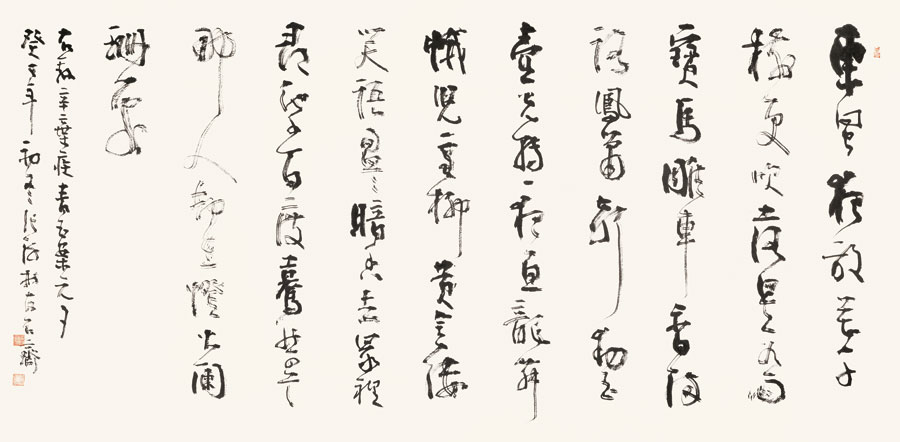 東風夜放花千
樹更吹落星如雨
寶馬雕車香滿
路鳳簫聲動玉
壺光轉一夜魚龍舞
蛾兒雪柳黃金縷
笑語盈盈暗香去眾裡
尋他千百度驀然回首
那人卻在燈火闌
珊處
右錄辛棄疾青玉案元夕
癸巳年初冬於古石齋